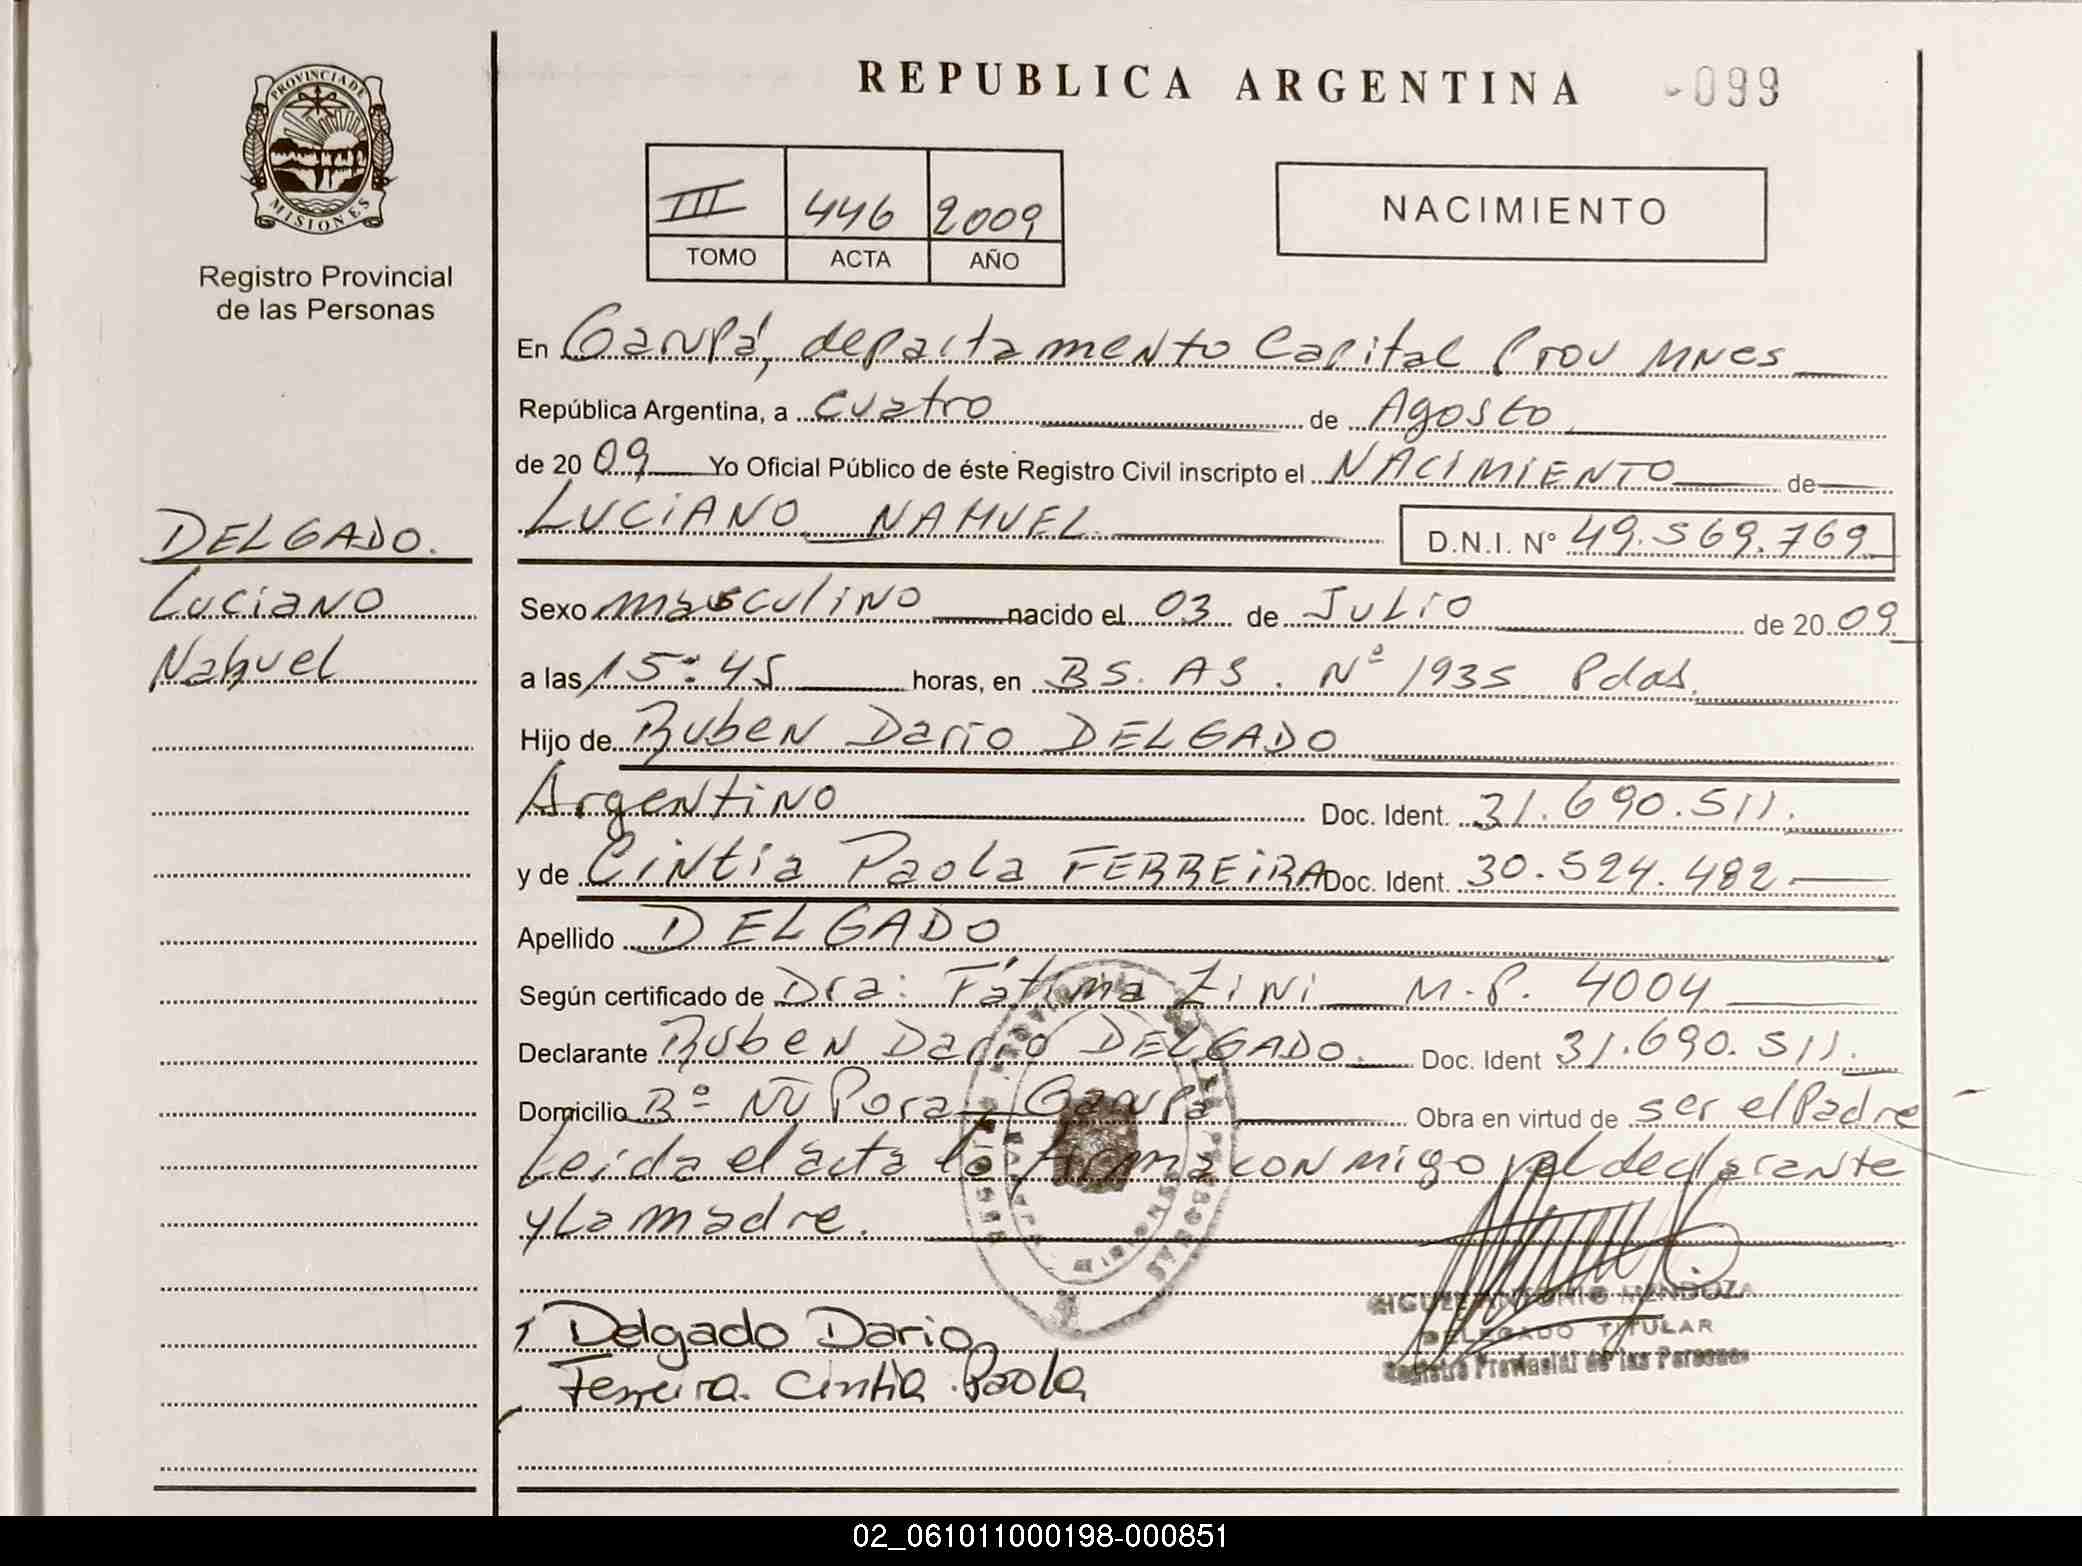 REPUBLICA ARGENTINA -099
PROVINCIA DE
MISIONES
Registro Provincial
de las Personas
III 446 2009
TOMO ACTA AÑO
NACIMIENTO
En Garupá, departamento Capital Prov MNes
República Argentina, a cuatro de Agosto
de 2009 Yo Oficial Público de éste Registro Civil inscripto el NACIMIENTO de
LUCIANO NAHUEL D.N.I. Nº 49.569.769
DELGADO.
Luciano
Nahuel
Sexo masculino nacido el 03 de JULIO de 2009
a las 15:45 horas, en BS. AS. Nº 1935 Pdas.
Hijo de Ruben Dario DELGADO
Argentino Doc. Ident. 31.690.511.
y de Cintia Paola FERREIRA Doc. Ident. 30.524.482
Apellido DELGADO
Según certificado de Dra: Fátima Zini M.P. 4004
Declarante Ruben Dario DELGADO. Doc. Ident 31.690.511.
Domicilio Bº Ñu Pora, Garupá Obra en virtud de ser el Padre
Leida el acta la firma conmigo el declarante
y la madre.
MIGUEL ANTONIO MENDOZA
DELEGADO TITULAR
Registro Provincial de las Personas
Delgado Dario
Ferreira. Cintia Paola
02_061011000198-000851